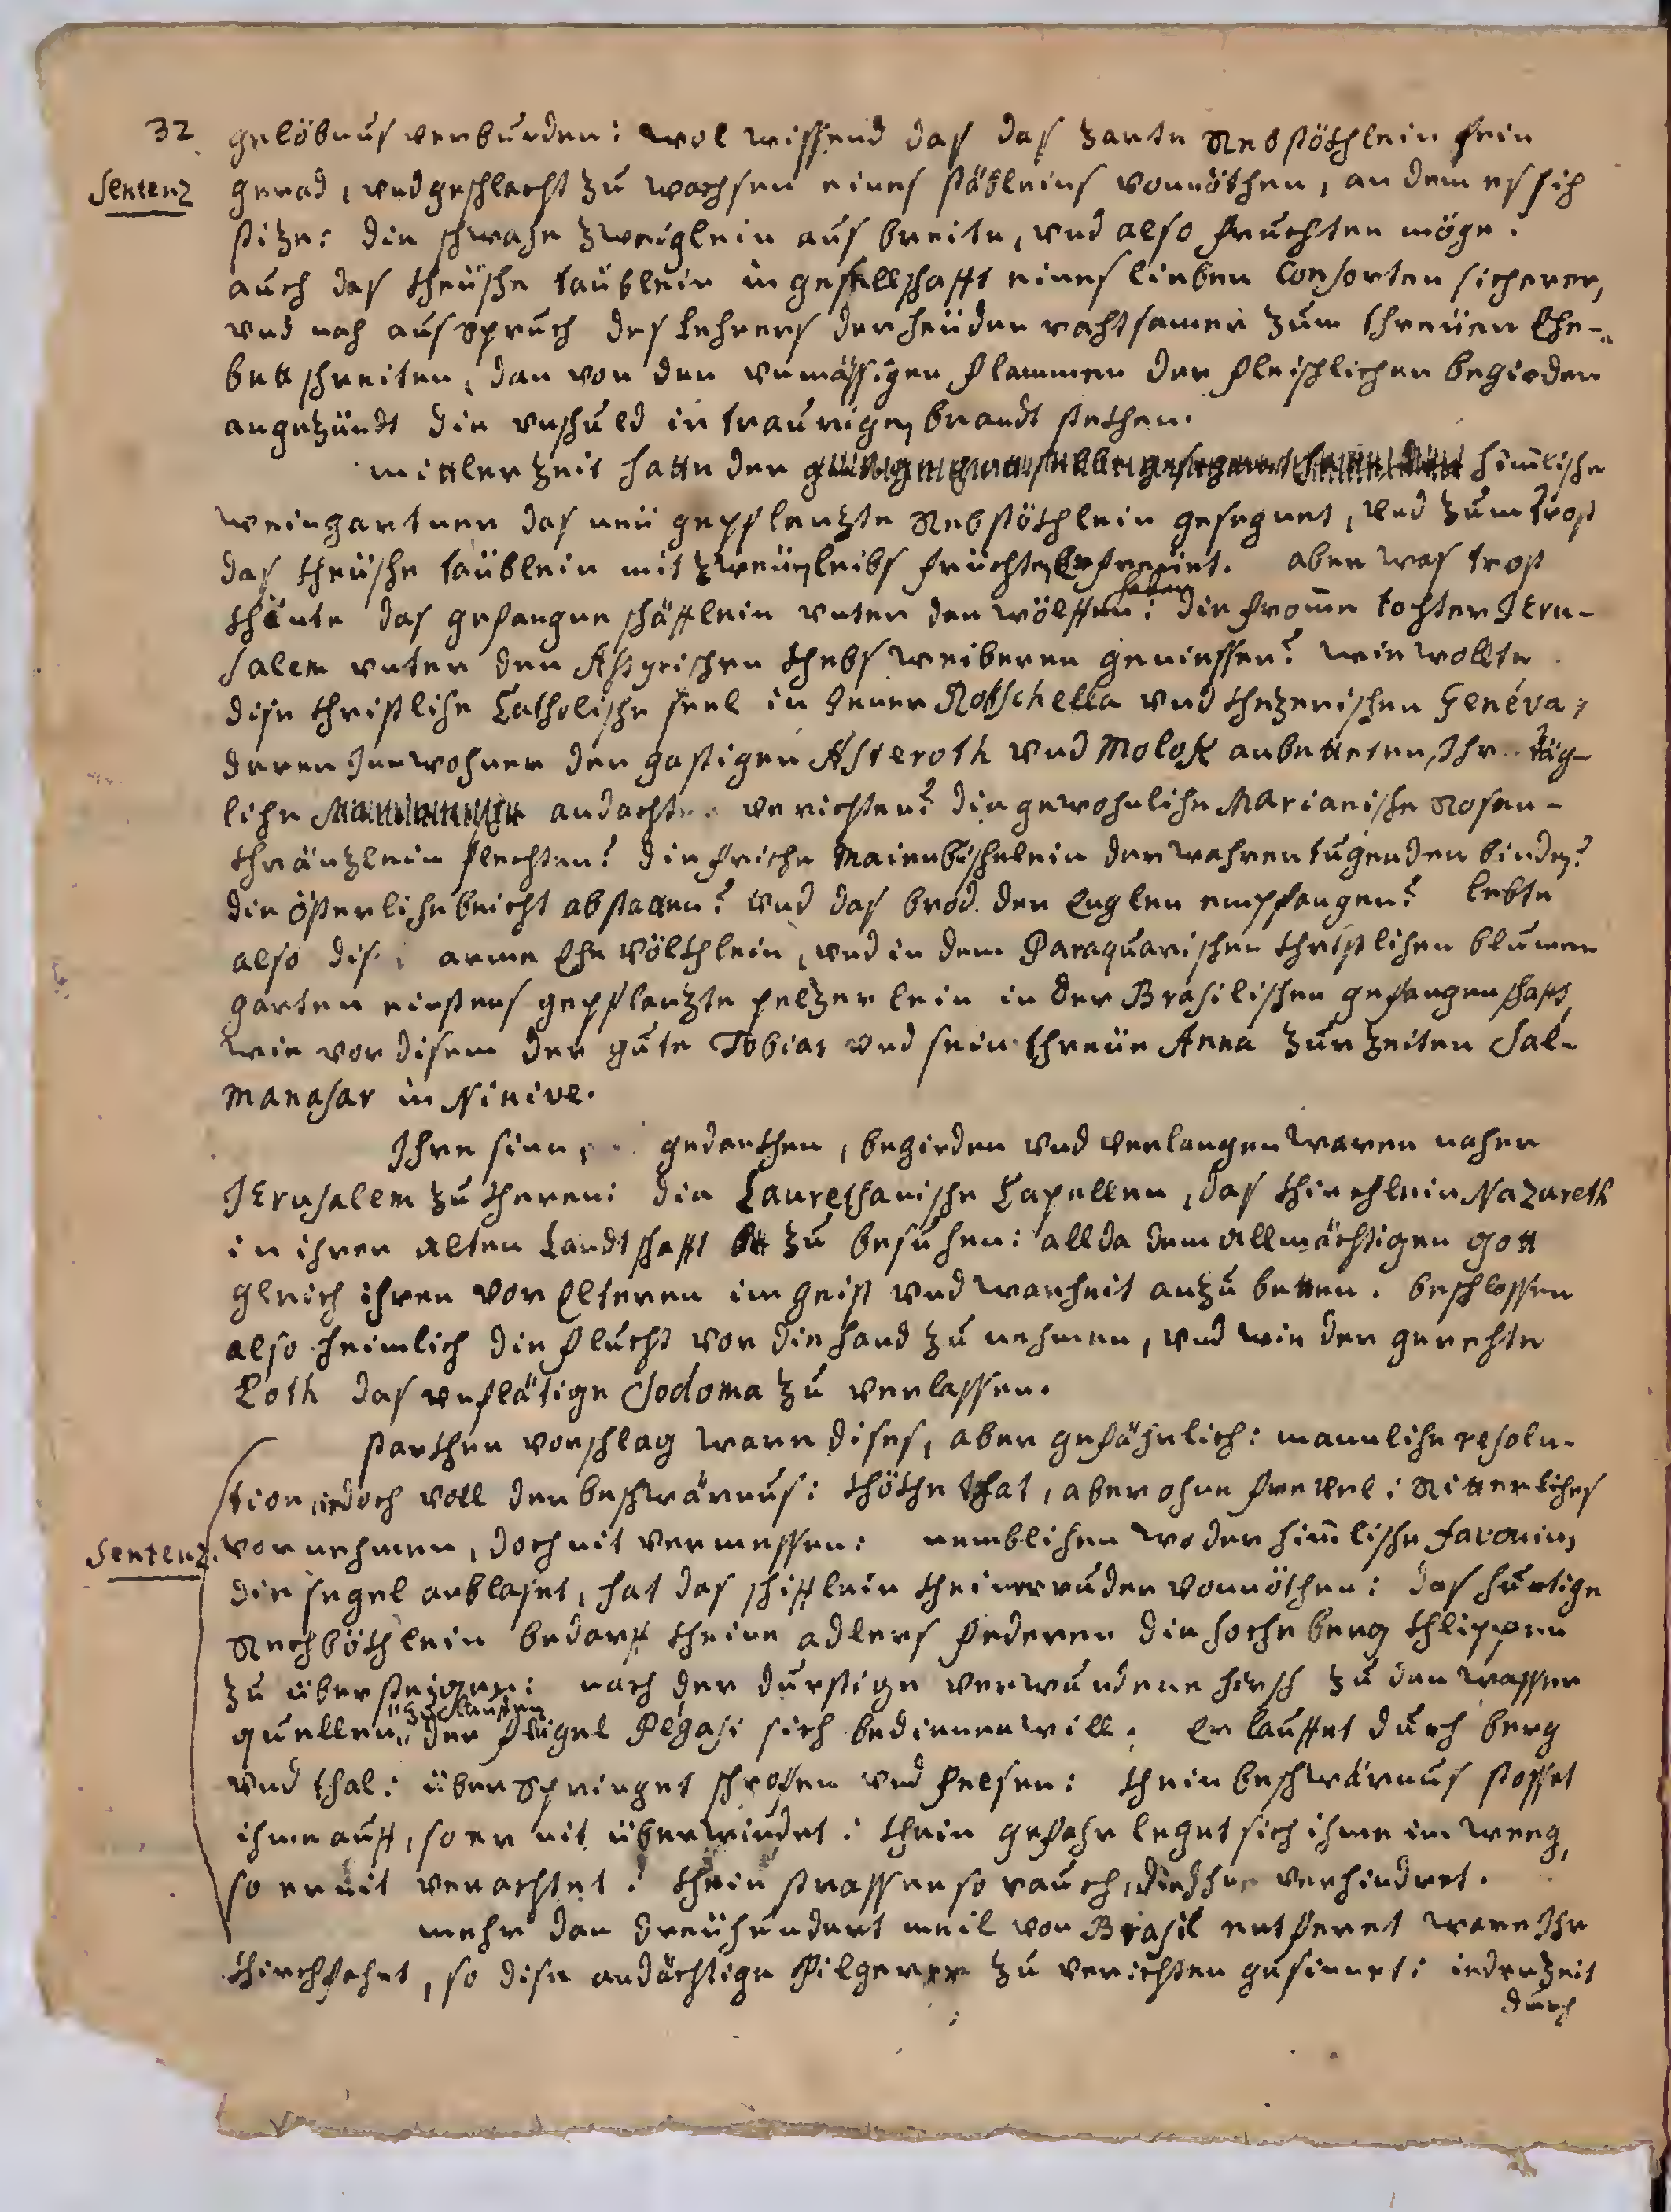 32 gelöbnus verbunden: wol wissend das das zarte Rebstöthlein fein
Sentenz gerad, und geschlacht zu wachsen eines stäbleins vonnöthen, an dem es sich
stize: die schwahe zweiglein aus breite, und also fruchten möge.
auch das theüshe taüblein in gesellschafft eines lieben Consorten sicherer,
und nah ausspruch des Lehrers der heüden rahtsamer zum threüen Ehe-
bett schreiten, dan von den unmässigen flammen der fleischlichen begirden
angezündt die unshuld in traurigen brandt stethen.
mittler zeit hatte der himlische
weingartner das neü gepflantzte Rebstöthlein gesegnet, und zum trost
das theüshe taüblein mit zweüen leibs früchten erfreüet. aber was trost
thönte das gefangne schäfflein unter den wölffen haben: die fromme tochter Jeru-
salem unter den Assyrischen thebsweiberen geniessen? wie wollte
dise christlihe Catholishe seel in jener Rotschella und thezerischen Geneva,
deren Innwohner den gastigen Asteroth und Moloh anbetteten, Ihr täg-
lihe andacht verichten? die gewohnlihe Marianishe Rosen-
thräntzlein flechten? die frishe Maienbüschelein der wahren tugenden binden?
die österlihe beicht abstatten? und das brod der Englen empfangen? lebte
also dis arme Ehe völthlein, und in dem Paraquarischen christlichen blumen
garten erstens gepflantzte pelzerlein in der Brasilischen gefangenshafft,
wie vor disem der gute Tobias und sein threüe Anna zur zeiten Sal-
manasar in Ninive.
Ihre sinn, gedanthen, begirden und verlangen waren naher
Jerusalem zu theren: die Laurethanishe Capellen, das thirchlein Nazareth
in ihrer alten Landtschafft zu besuhen: allda dem allmächtigen gott
gleich ihren vor Elteren im geist und warheit anzubetten. beschlossen
also heimlich die flucht vor die hand zu nehmen, und wie der gerechte
Loth das unflätige Sodoma zu verlassen.
starther vorschlag ware dises, aber gefährlich: mannlihe resolu-
tion, iedoch voll der beschwärnus: thöthe that, aber ohne frevel: Ritterliches
Sentenz. vornehmen, doch nit vermessen: nemblichen wo der himlishe Favonius
die segel anblaset, hat das schifflein theiner ruder vonnöthen: das hurtige
Rechböthlein bedarf theine adlers federen die hoche berg thlippen
zu übersteigen: noch der durstige verwundene hirsch zu den wasser
quellen zu lauffen der flügel Pegasi sich bedienen will. Er lauffet durch berg
und thal: überspringet schrofen und felsen: thein beschwärnus stosset
ihme auff, so er nit überwindet: thein gefahr leget sich ihme im weeg,
so er nit verachtet: thein strassen so rauch, die Ihne verhindret.
mehr dan dreühundert meil von Brasil entfernt ware Ihr
thirchfahrt, so dise andächtige Pilger zu verichten gesinnet: iederzeit
durch